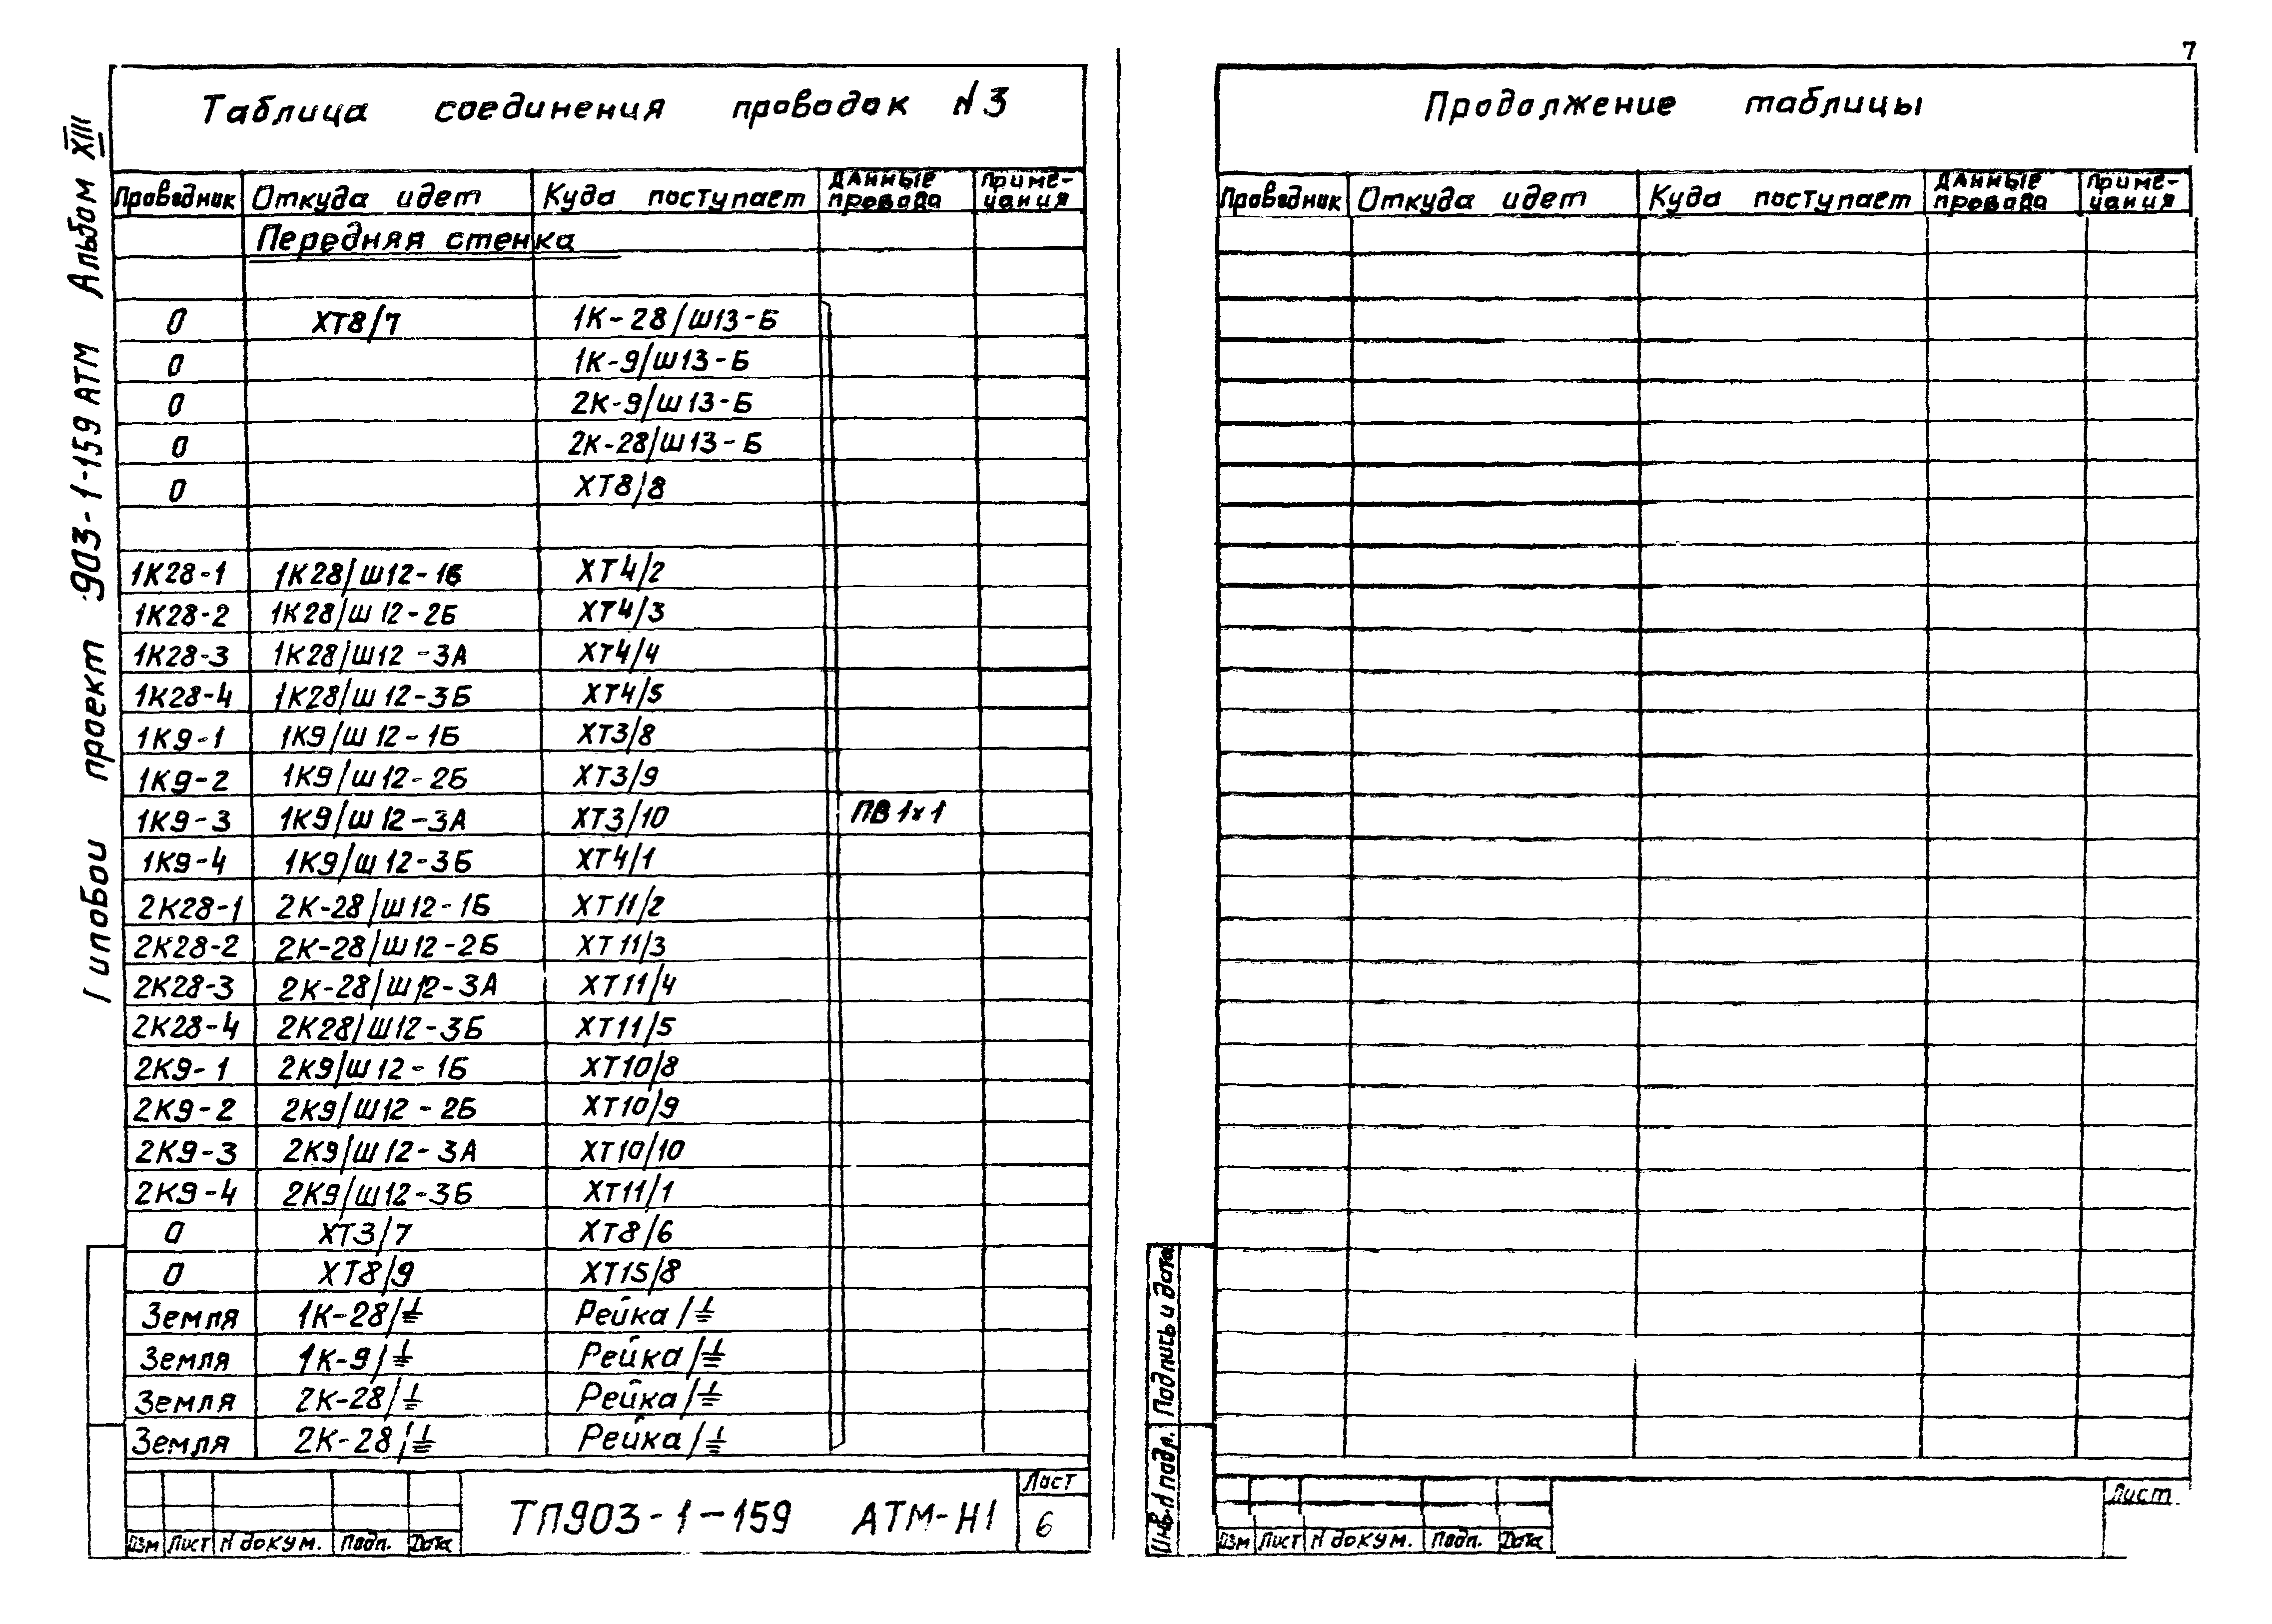 7
Типовой проект 903-1-159 АТМ Альбом XIII
Таблица соединения проводок N3
Проводник Откуда идет Куда поступает Данные провода Примечания
Передняя стенка
0 ХТ8/7 1К-28/Ш13-Б
0 1К-9/Ш13-Б
0 2К-9/Ш13-Б
0 2К-28/Ш13-Б
0 ХТ8/8
1К28-1 1К28/Ш12-1Б ХТ4/2
1К28-2 1К28/Ш12-2Б ХТ4/3
1К28-3 1К28/Ш12-3А ХТ4/4
1К28-4 1К28/Ш12-3Б ХТ4/5
1К9-1 1К9/Ш12-1Б ХТ3/8
1К9-2 1К9/Ш12-2Б ХТ3/9
1К9-3 1К9/Ш12-3А ХТ3/10 ПВ 1х1
1К9-4 1К9/Ш12-3Б ХТ4/1
2К28-1 2К-28/Ш12-1Б ХТ11/2
2К28-2 2К-28/Ш12-2Б ХТ11/3
2К28-3 2К-28/Ш12-3А ХТ11/4
2К28-4 2К28/Ш12-3Б ХТ11/5
2К9-1 2К9/Ш12-1Б ХТ10/8
2К9-2 2К9/Ш12-2Б ХТ10/9
2К9-3 2К9/Ш12-3А ХТ10/10
2К9-4 2К9/Ш12-3Б ХТ11/1
0 ХТ3/7 ХТ8/6
0 ХТ8/9 ХТ15/8
Земля 1К-28/⏚ Рейка/⏚
Земля 1К-9/⏚ Рейка/⏚
Земля 2К-28/⏚ Рейка/⏚
Земля 2К-28/⏚ Рейка/⏚
Изм Лист N докум. Подп. Дата
ТП903-1-159 АТМ-Н1
Лист
6
Продолжение таблицы
Проводник Откуда идет Куда поступает Данные провода Примечания
Инв.N подл. Подпись и дата
Изм Лист N докум. Подп. Дата
Лист